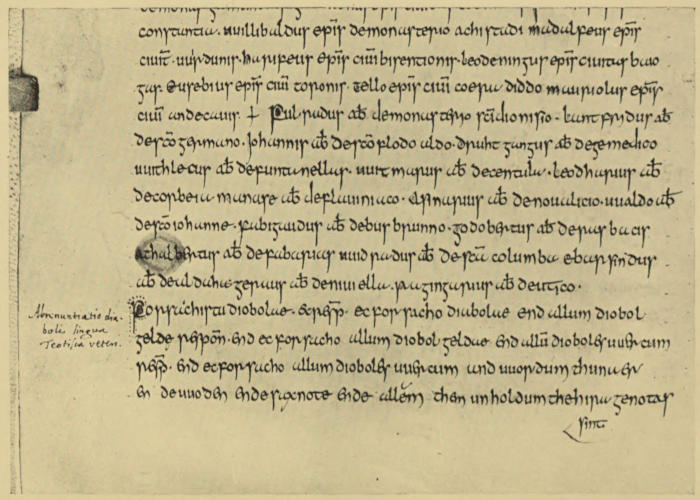 constantia. uuillibaldus epis de monasterio achistadi madalfeus epis
ciuit. uuirdunis. hairipeus epis ciuit birentionis. leodeningus epis ciuitas baio
gas. eusebius epis ciuit toronis. tello epis ciuit coera. diddo mauriolus epis
ciuit andecauis + Fulradus ab de monasterio sci dionisio. lantfridus ab
de sco germano. Johannis ab de sco flodoaldo. druhtgangus ab de gemedico
uuithlecus ab de funtanellas. uuitmarus ab de centula. leodharius ab
de corbeia manase ab de flauiniaco. asinarius ab de noualicio. uualdo ab
de sco iohanne. fabigaudus ab de busbrunno. godobertus ab de rasbacis
athalbertus ab de fabarias uuidradus ab de sca columba ebarsindus
ab de aldaha geraus ab de niuiella. ragingarius ab de utico.
Forsachistu diabolae. & resp. ec forsacho diabolae end allum diobol
gelde respon. end ec forsacho allum diobolgeldae end allu dioboles uuercum
resp. end ec forsacho allum dioboles uuercum and uuordum thuna er
ende uuoden ende saxnote ende allem them unholdum the hira genotas
sint
Abrenuntiatio dia-
boli lingua
Teotisca veteri.